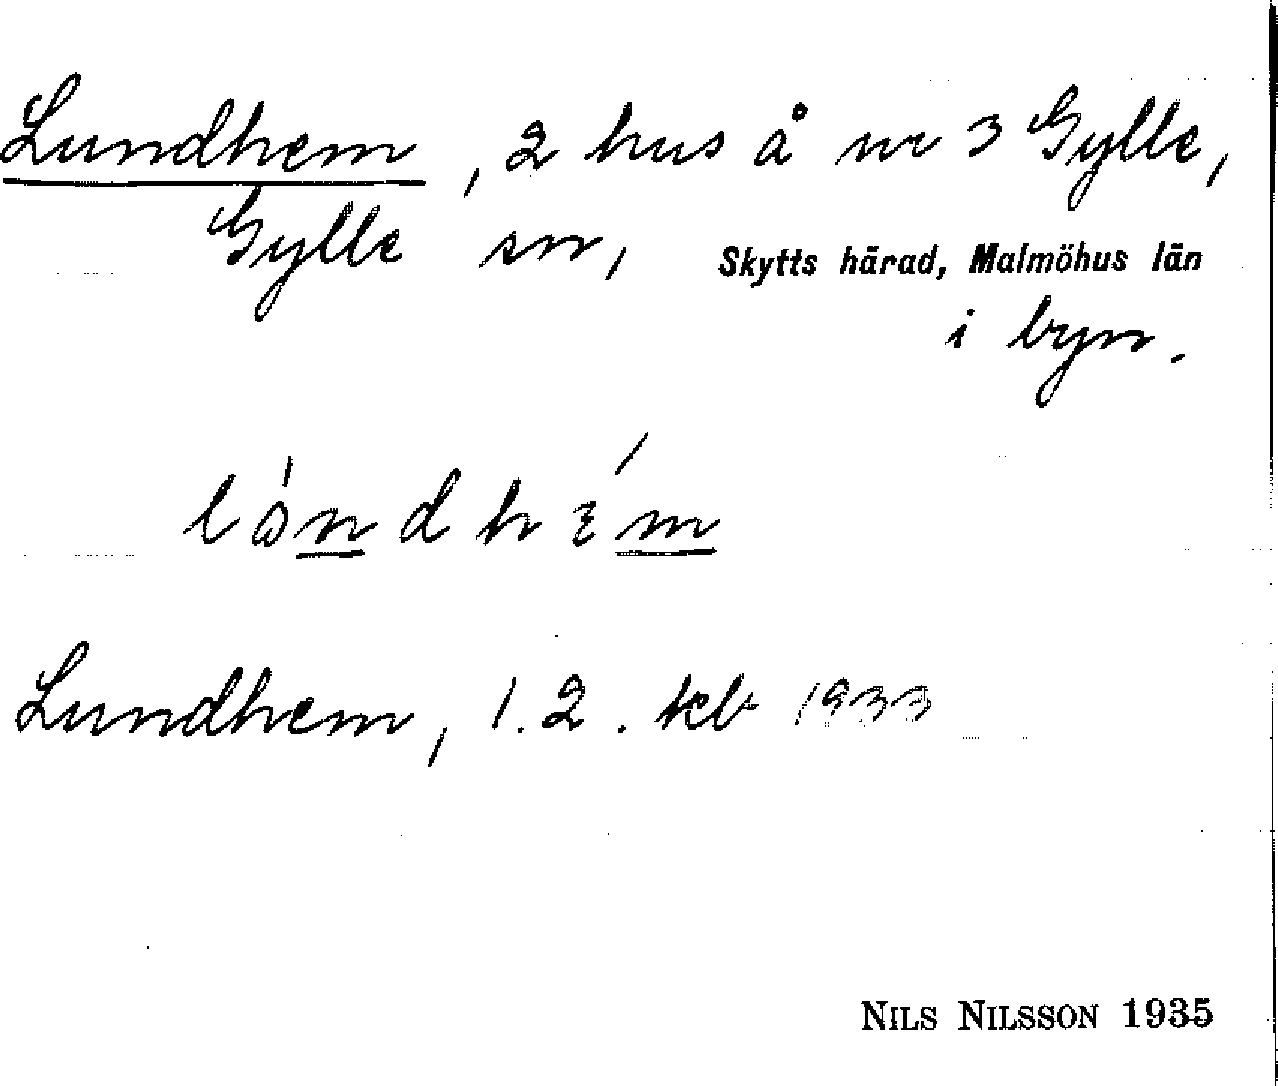 Lundhem, 2 hus å nr 3 Gylle,
Gylle sn, Skytts härad, Malmöhus län
i byn.
Lundhem, 1. 2. kb 1933
NILS NILSSON 1935